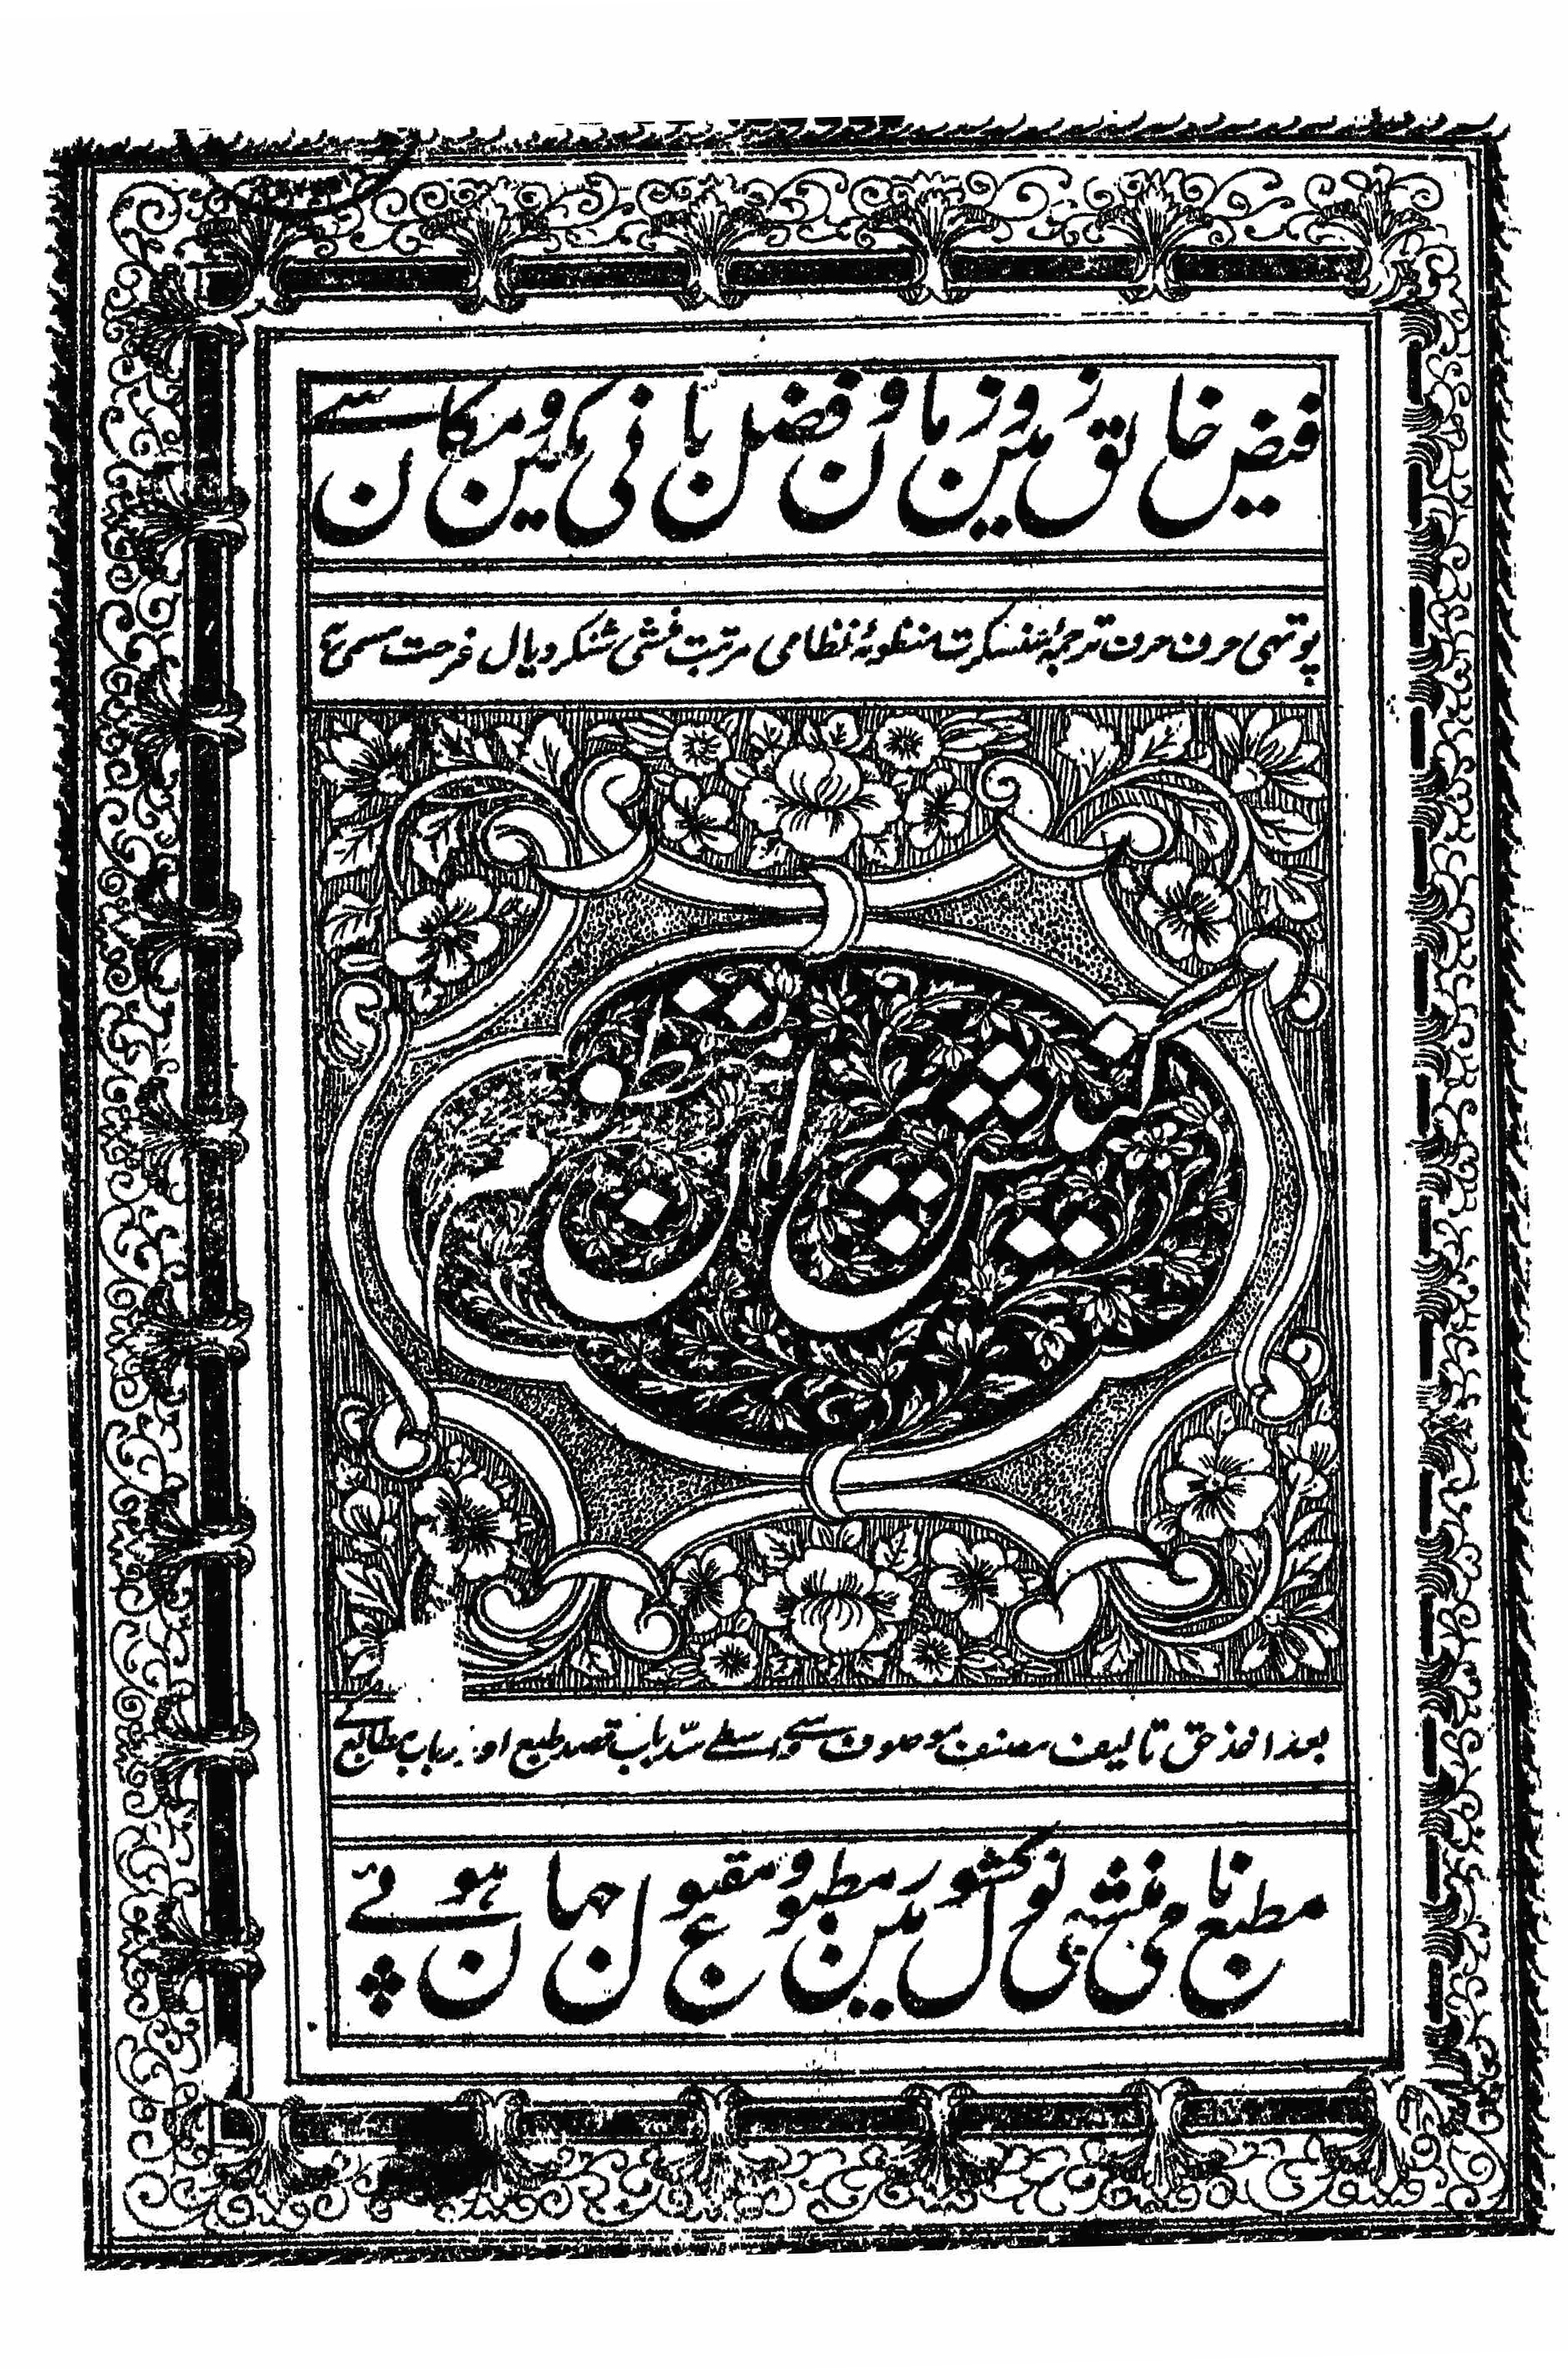 فیض خالق زمین و زمان و فضل بانی مکین و مکان سے
پوتھی حرف حرف ترجمۂ سنسکرت منظومۂ نظامی مرتبت منشی شنکر دیال فرحت مسمی بہ
گنیش پران منظوم
بعد اخذ حق تالیف مصنف موصوف سے واسطے سد باب قصد طبع اور ارباب مطابع کے
مطبع نامی منشی نولکشور مین مطبوع و مقبول جہان ہوئی